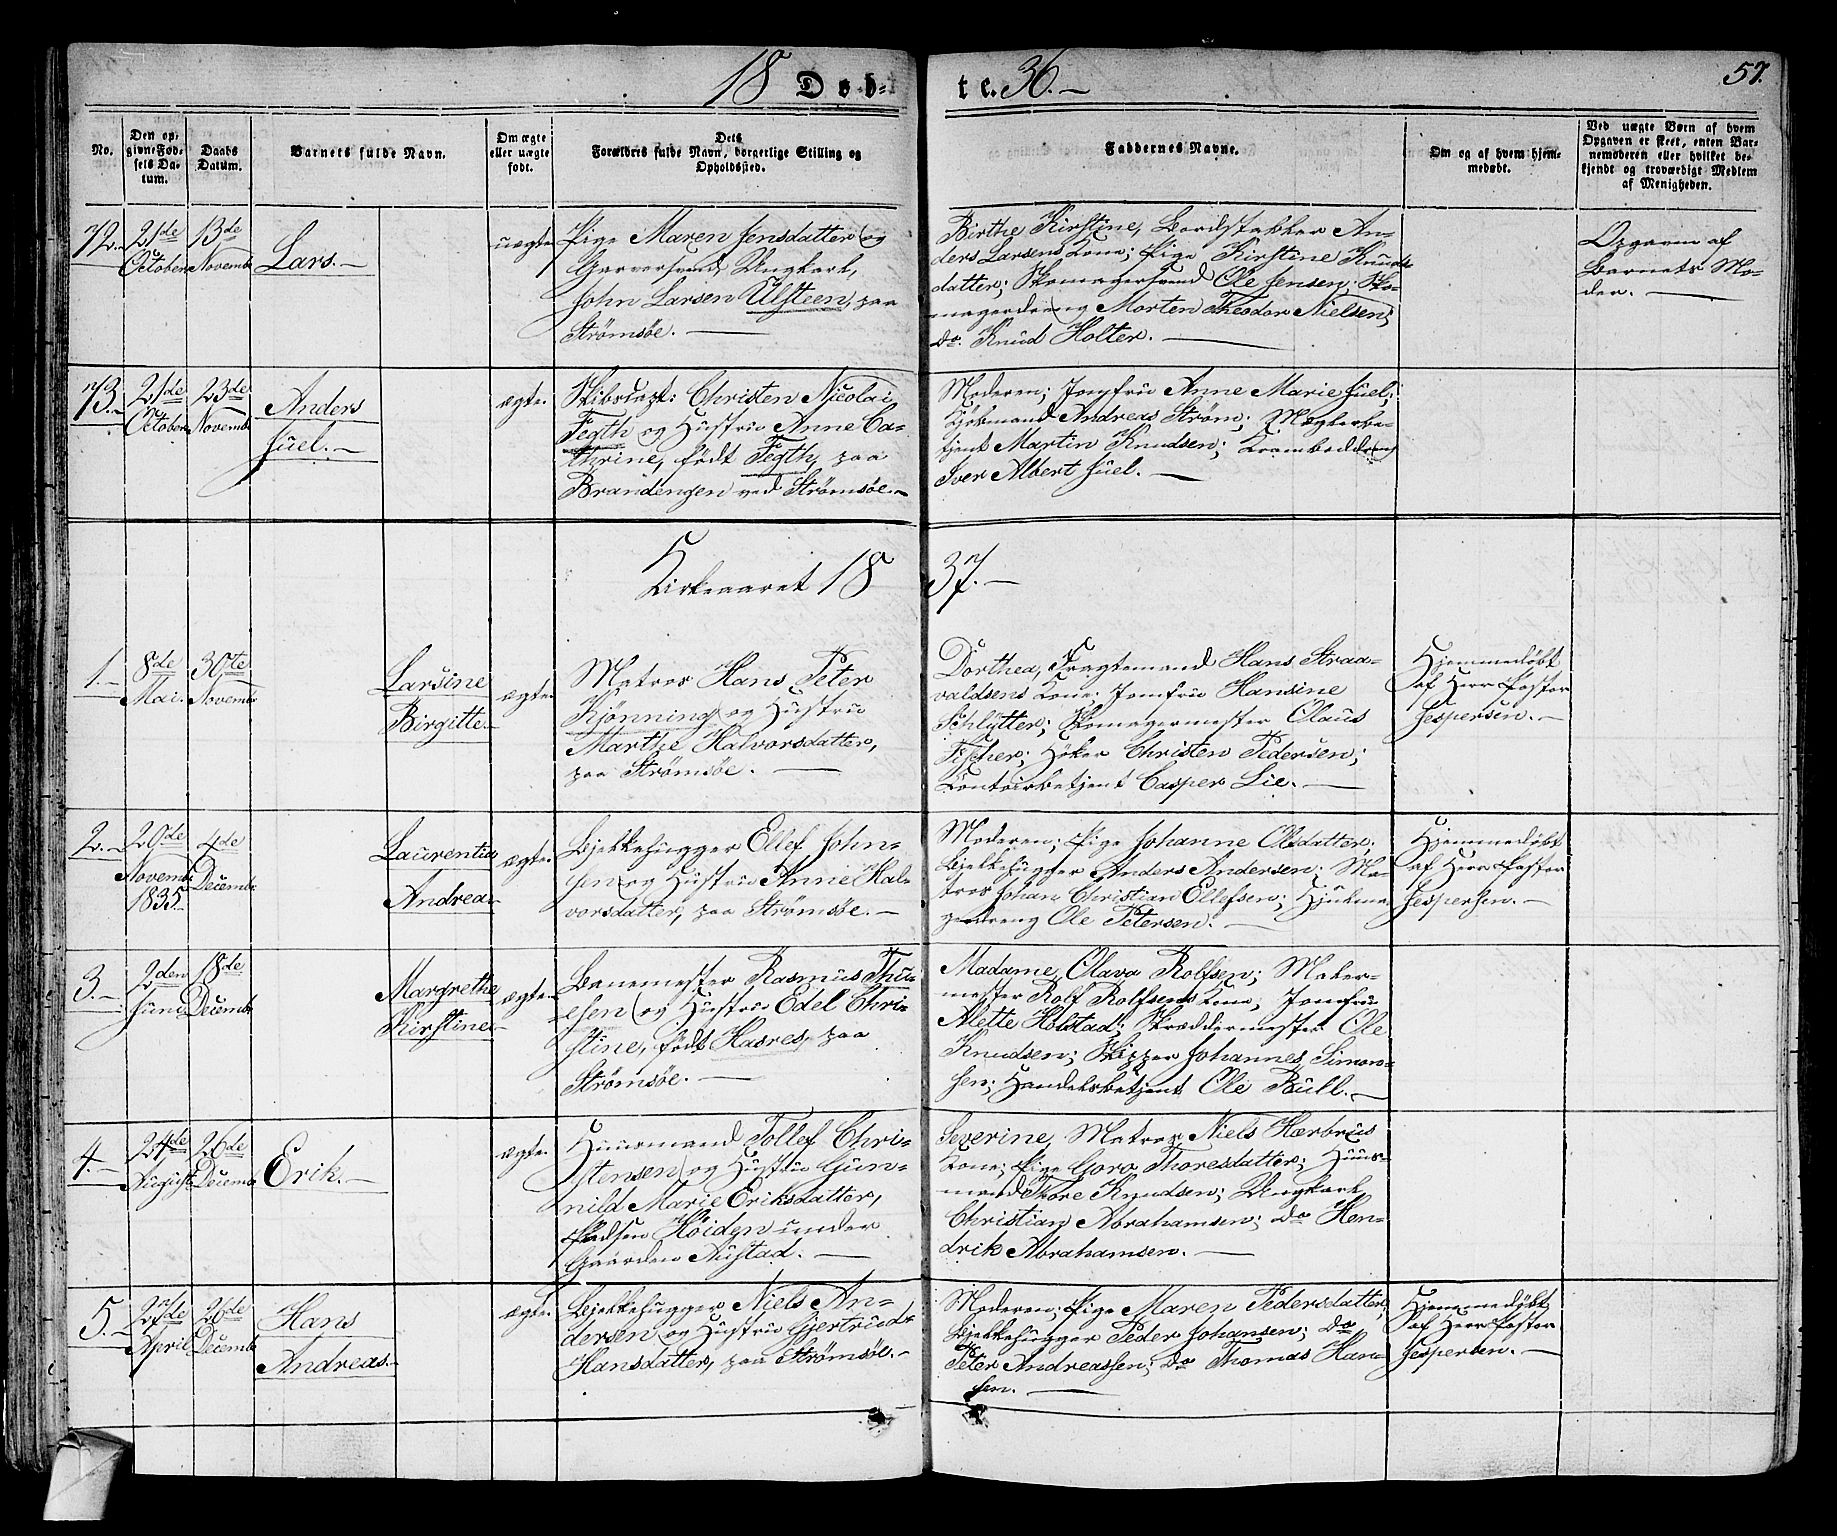 18 Døb-
te. 36.-
57.
No.
Den op-
givne Fød-
sels Da-
tum.
Daabs
Datum.
Barnets fulde Navn.
Om ægte
eller uægte
født.
Dets
Forældres fulde Navn, borgerlige Stilling og
Opholdssted.
Faddernes Navne.
Om og af hvem hjem-
medøbt.
Ved uægte Børn af hvem
Opgaven er skeet, enten Bar-
nemoderen eller hvilket be-
kjendt og troværdigt Medlem
af Menigheden.
72.-
21de
October
13de
Novembr
Lars.-
uægte
Pige Maren Jensdatter og
Garversvend Ungkarl,
John Larsen Ulsteen, paa
Strømsøe.-
Birthe Kirstine, Bordstabler An-
ders Larsens Kone; Pige Kirstine Knuds-
datter; Skomagersvend Ole Jensen; Sko-
magerdreng Morten Theodor Nielsen;
do. Knud Holter.-
Opgaven af
Barnets Mo-
der.-
73.-
21de
October
23de
Novembr
Anders
Juel.-
ægte
Skibscapt: Christen Nicolai
Fegth og Hustru Anne Ca-
thrine, født Fegth, paa
Brandengen ved Strømsøe.-
Moderen; Jomfru Anne Marie Juel;
Kjøbmand Andreas Strøm; Mæglerbe-
tjent Martin Knudsen; Kramboddreng
Iver Albert Juel.-
Kirkeaaret 18
37.-
1.-
8de
Mai.
30te
Novembr
Larsine
Birgitte.-
ægte
Matros Hans Peter
Kjønning og Hustru
Marthe Halvorsdatter,
paa Strømsøe.-
Dorthea, Fragtemand Hans Straa-
valdsens Kone; Jomfru Hansine
Schlytter; Skomagermester Olaus
Fischer; Høker Christen Pedersen;
Contoirbetjent Casper Lie.-
Hjemmedøbt
af Herr Pastor
Jespersen.-
2.-
20de
Novembr
1835
4de
Decembr
Laurentia
Andrea-
ægte
Bjelkehugger Ellef John-
sen og Hustru Anne Hal-
vorsdatter, paa Strømsøe.-
Moderen; Pige Johanne Olsdatter;
Bjelkehugger Anders Andersen; Ma-
tros Johan Christian Ellefsen;
Ole Petersen.
Hjemmedøbt
af Herr Pastor
Jespersen.-
3.-
2den
Juni
18de
Decembr
Margrethe
Kirstine-
ægte
Banemester Rasmus Thu-
esen og Hustru Edel Chri-
stine, født Hasnes, paa
Strømsøe.-
Madame Olava Rolfsen; Maler-
mester Rolf Rolfsens Kone; Jomfru
Alette Holstad; Skræddermester Ole
Knudsen; Skipper Johannes Simon-
sen; Handelsbetjent Ole Bull.-
4.-
24de
August
26de
Decembr
Erik.-
ægte
Huusmand Tollef Chri-
stensen og Hustru Gun-
nild Marie Eriksdatter,
Pladsen Høidyn under
Gaarden Austad.-
Severine, Matros Niels Hærbrus
Kone; Pige Goro Thoresdatter; Huus-
mand Thore Knudsen; Ungkarl
Christian Abrahamsen; do Hen-
drik Abrahamsen.-
5.-
27de
April
26de
Decembr
Hans
Andreas.-
ægte
Bjelkehugger Niels An-
dersen og Hustru Gjertrud
Hansdatter, paa Strømsøe.-
Moderen; Pige Maren Pedersdatter;
Bjelkehugger Peder Johansen; do
Peter Andreassen; do Thomas Han-
sen.-
Hjemmedøbt
af Herr Pastor
Jespersen.-